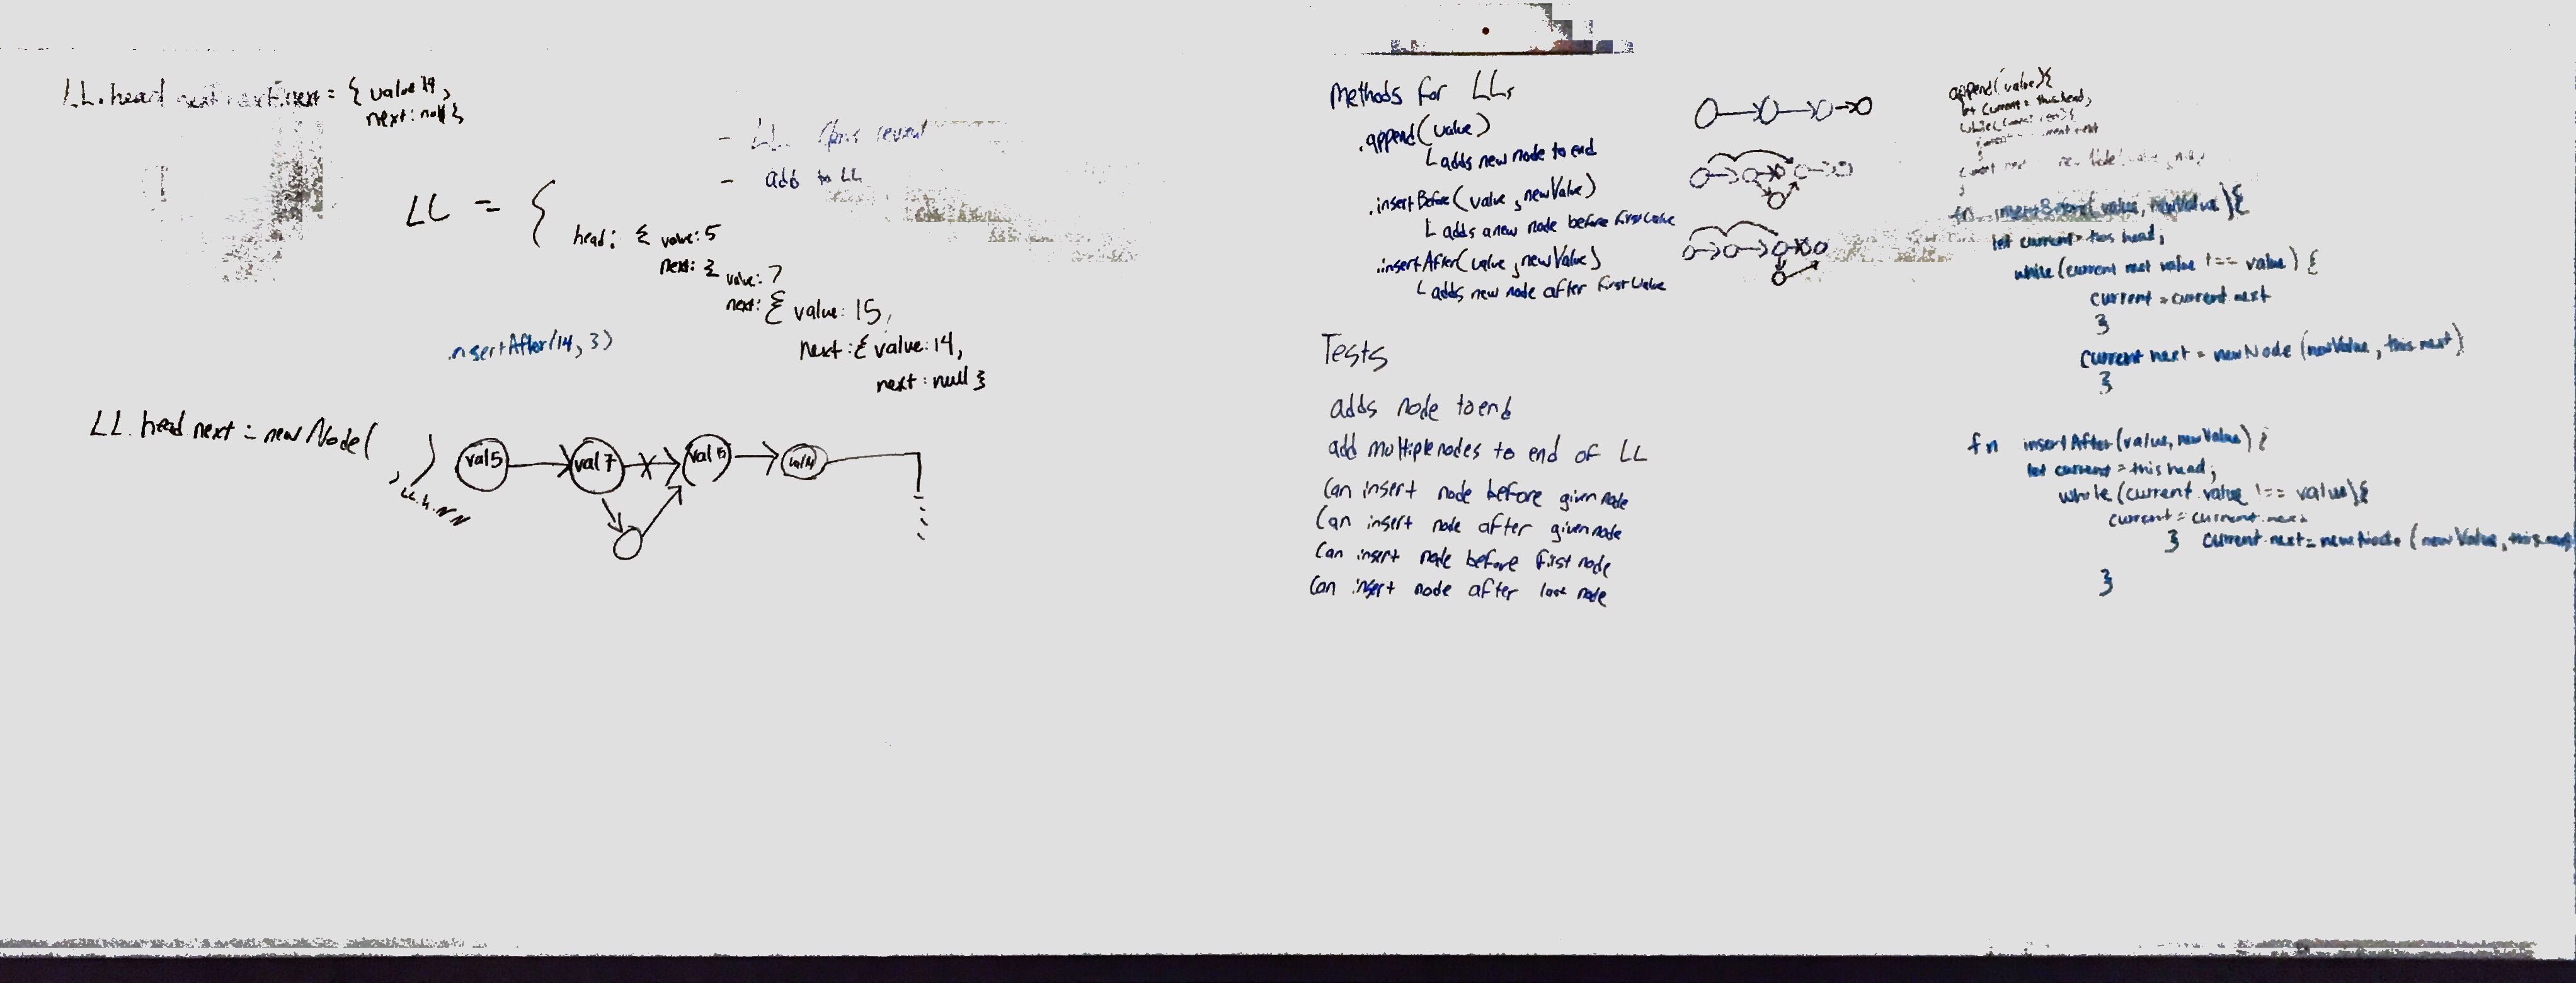 LL.head next next.next = { value 14,
next: null }
- LL
- add to LL
LL = {
head: { value: 5
next: { value: 7
next: { value: 15,
next: { value: 14,
next: null }
.nsertAfter(14, 3)
LL.head next = new Node(
, )
LL.h.N N
val 5
val 7
val 15
val 14
Methods for LLs
.append(value)
adds new node to end
.insertBefore(value, newValue)
adds a new node before first value
.insertAfter(value, newValue)
adds new node after first value
Tests
adds node to end
add multiple nodes to end of LL
Can insert node before given node
Can insert node after given node
Can insert node before first node
Can insert node after last node
append(value){
let current = this.head;
while (current
current next
}
current next new Node
}
fn insertBefore(value, newValue){
let current = this head;
while (current next value !== value) {
current = current.next
}
current next = new Node (newValue, this next)
}
fn insertAfter(value, newValue) {
let current = this head;
while (current.value !== value){
current = current.next
} current.next = new Node (newValue, this.next
}